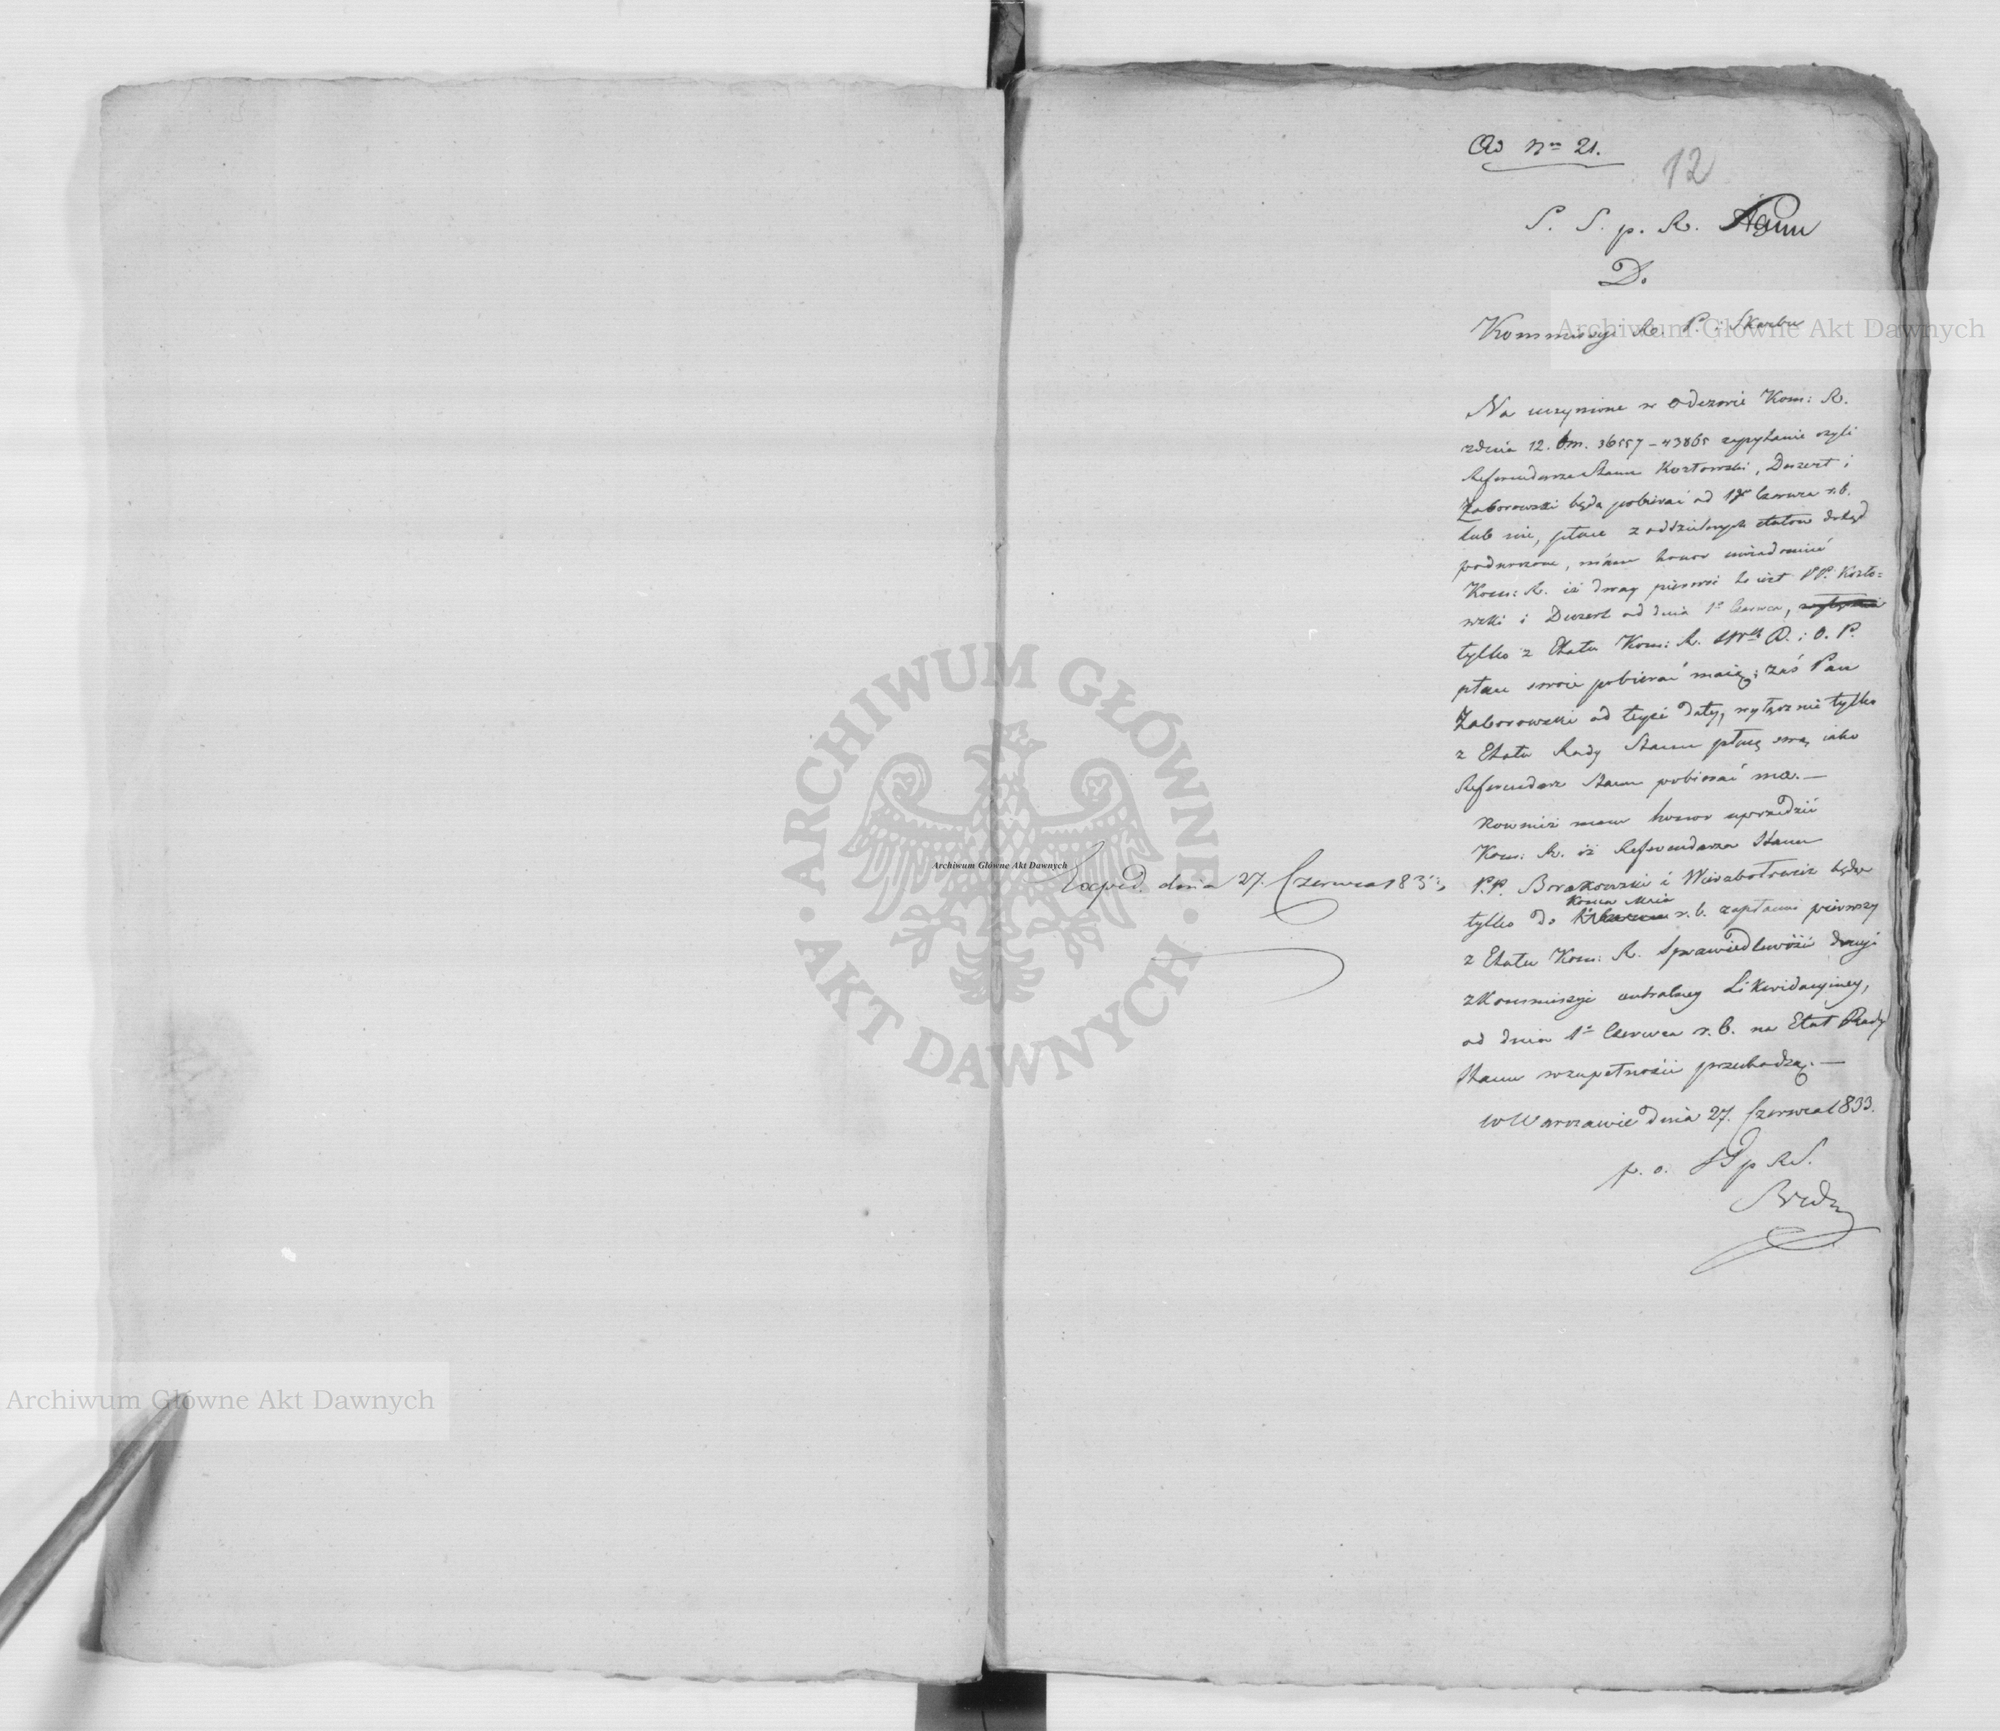 Ad Nrm 21.
12
S. S. p. R. Stanu
Do
Kommissyi R. P. i Skarbu
Na uczynione w Odezwie Kom: R.
zdnia 12. b.m. 36557 – 43865 zapytanie czyli
Referendarze Stanu Kozłowski, Duzert i
Zaborowski będą pobierać od 1go Czerwca r.b.
lub nie, płace z oddzielnych etatow dotąd
podnoszone, mam honor uwiadomić
Kom: R. iż dway pierwsi to iest PP. Kozło=
wski i Duzert od dnia 1o Czerwca,
tylko z Etatu Kom: R. S. W. D. i O. P.
płace swoie pobierać maią; zaś Pan
Zaborowski od teyże daty, wyłącznie tylko
z Etatu Rady Stanu płacę swą iako
Referendarz Stanu pobierać ma. —
Rownież mam honor uprzedzić
Kom: R. iż Referendarze Stanu
P.P. Borakowski i Wierzbołowicz będąc
Konca Maia
tylko do r.b. zapłaceni pierwszy
z Etatu Kom: R. Sprawiedliwości drugi
z Kommissyi centralney Likwidacyiney,
od dnia 1o Czerwca r.b. na Etat Rady
Stanu wzupełności przechodzą. —
w Warszawie dnia 27. Czerwca 1833.
p. o. S S p R S.
Exped. dnia 27. Czerwca 1833
Archiwum Główne Akt Dawnych
Archiwum Główne Akt Dawnych
Archiwum Główne Akt Dawnych
ARCHIWUM GŁÓWNE
AKT DAWNYCH